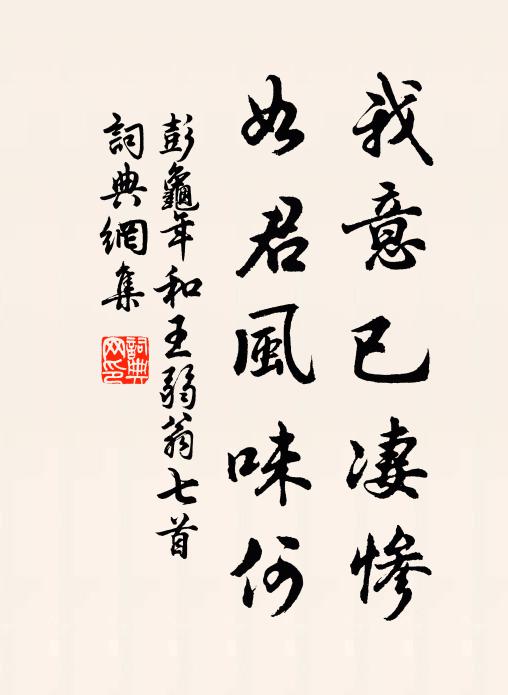 我意已凄慘
如君風味何
彭龜年和王弱翁七首
詞典網集
詞典
网印